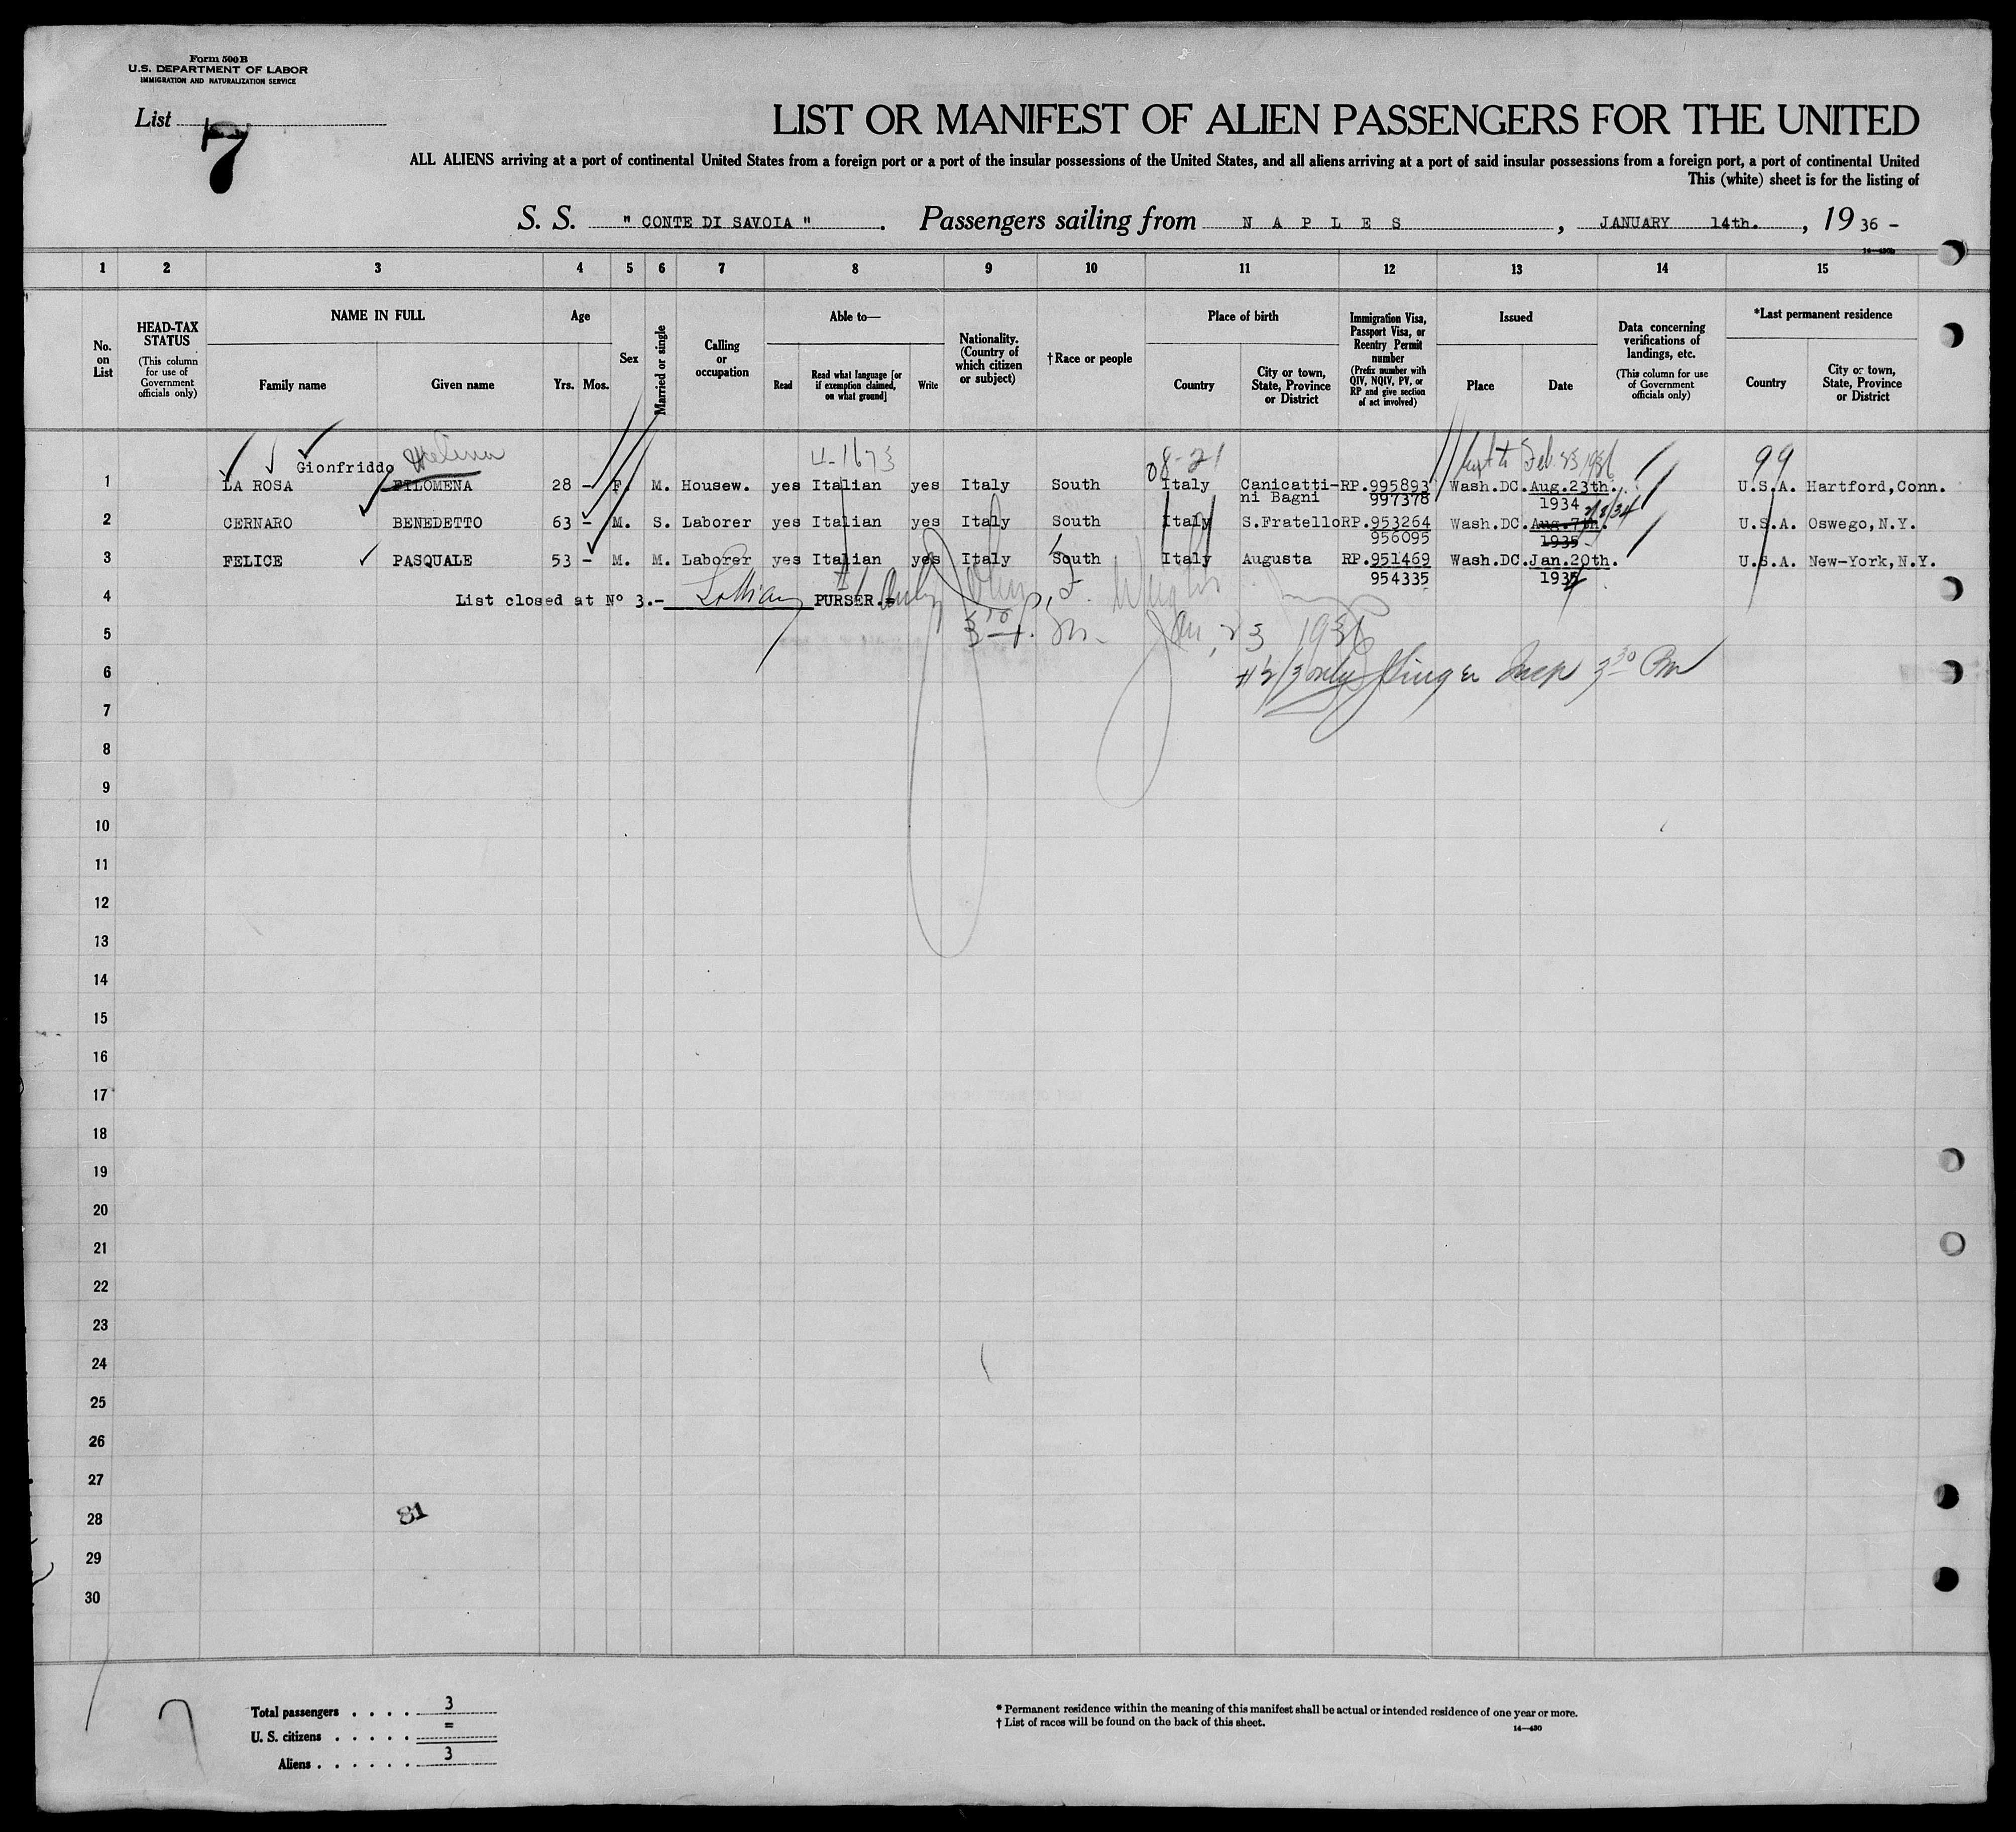 Form 500 B
U.S. DEPARTMENT OF LABOR
IMMIGRATION AND NATURALIZATION SERVICE
List 7
LIST OR MANIFEST OF ALIEN PASSENGERS FOR THE UNITED
ALL ALIENS arriving at a port of continental United States from a foreign port or a port of the insular possessions of the United States, and all aliens arriving at a port of said insular possessions from a foreign port, a port of continental United
This (white) sheet is for the listing of
S. S. " CONTE DI SAVOIA " . Passengers sailing from N A P L E S , JANUARY 14th. , 19 36 -
14—430b
1 2 3 4 5 6 7 8 9 10 11 12 13 14 15
No. on List
HEAD-TAX STATUS
(This column for use of Government officials only)
NAME IN FULL
Family name Given name
Age
Yrs. Mos.
Sex
Married or single
Calling or occupation
Able to—
Read
Read what language [or if exemption claimed, on what ground]
Write
Nationality. (Country of which citizen or subject)
†Race or people
Place of birth
Country
City or town, State, Province or District
Immigration Visa, Passport Visa, or Reentry Permit number
(Prefix number with QIV, NQIV, PV, or RP and give section of act involved)
Issued
Place Date
Data concerning verifications of landings, etc.
(This column for use of Government officials only)
*Last permanent residence
Country
City or town, State, Province or District
4-1673 08-21 Feb. 23, 1936 99
Gionfriddo Helena
1 LA ROSA FILOMENA 28 - F. M. Housew. yes Italian yes Italy South Italy Canicatti- RP.995893 Wash.DC. Aug.23th. U.S.A. Hartford,Conn.
ni Bagni 997378 1934
2/8/34
2 CERNARO BENEDETTO 63 - M. S. Laborer yes Italian yes Italy South Italy S.Fratello RP.953264 Wash.DC. Aug.7th. U.S.A. Oswego,N.Y.
956095 1935
3 FELICE PASQUALE 53 - M. M. Laborer yes Italian yes Italy South Italy Augusta RP.951469 Wash.DC. Jan.20th. U.S.A. New-York,N.Y.
954335 193
4 List closed at Nº 3.- PURSER.= #1 Only
5 Jan, 23 1936
6 #2/3 only Insp 3 30 PM
7
8
9
10
11
12
13
14
15
16
17
18
19
20
21
22
23
24
25
26
27
28 81
29
30
Total passengers . . . . 3
U. S. citizens . . . . . =
Aliens . . . . . . 3
* Permanent residence within the meaning of this manifest shall be actual or intended residence of one year or more.
† List of races will be found on the back of this sheet.
14—430